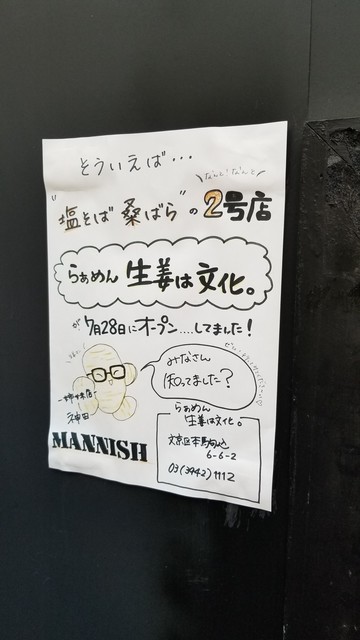 そういえば・・・
なんと!なんと
"塩そば 桑ばら"の2号店
らぁめん 生姜は文化。
が7月28日にオープン....してました!
みなさん
知ってました?
姉妹店
神田
MANNISH
らぁめん
生姜は文化。
文京区本駒込
6-6-2
03(3942)1112